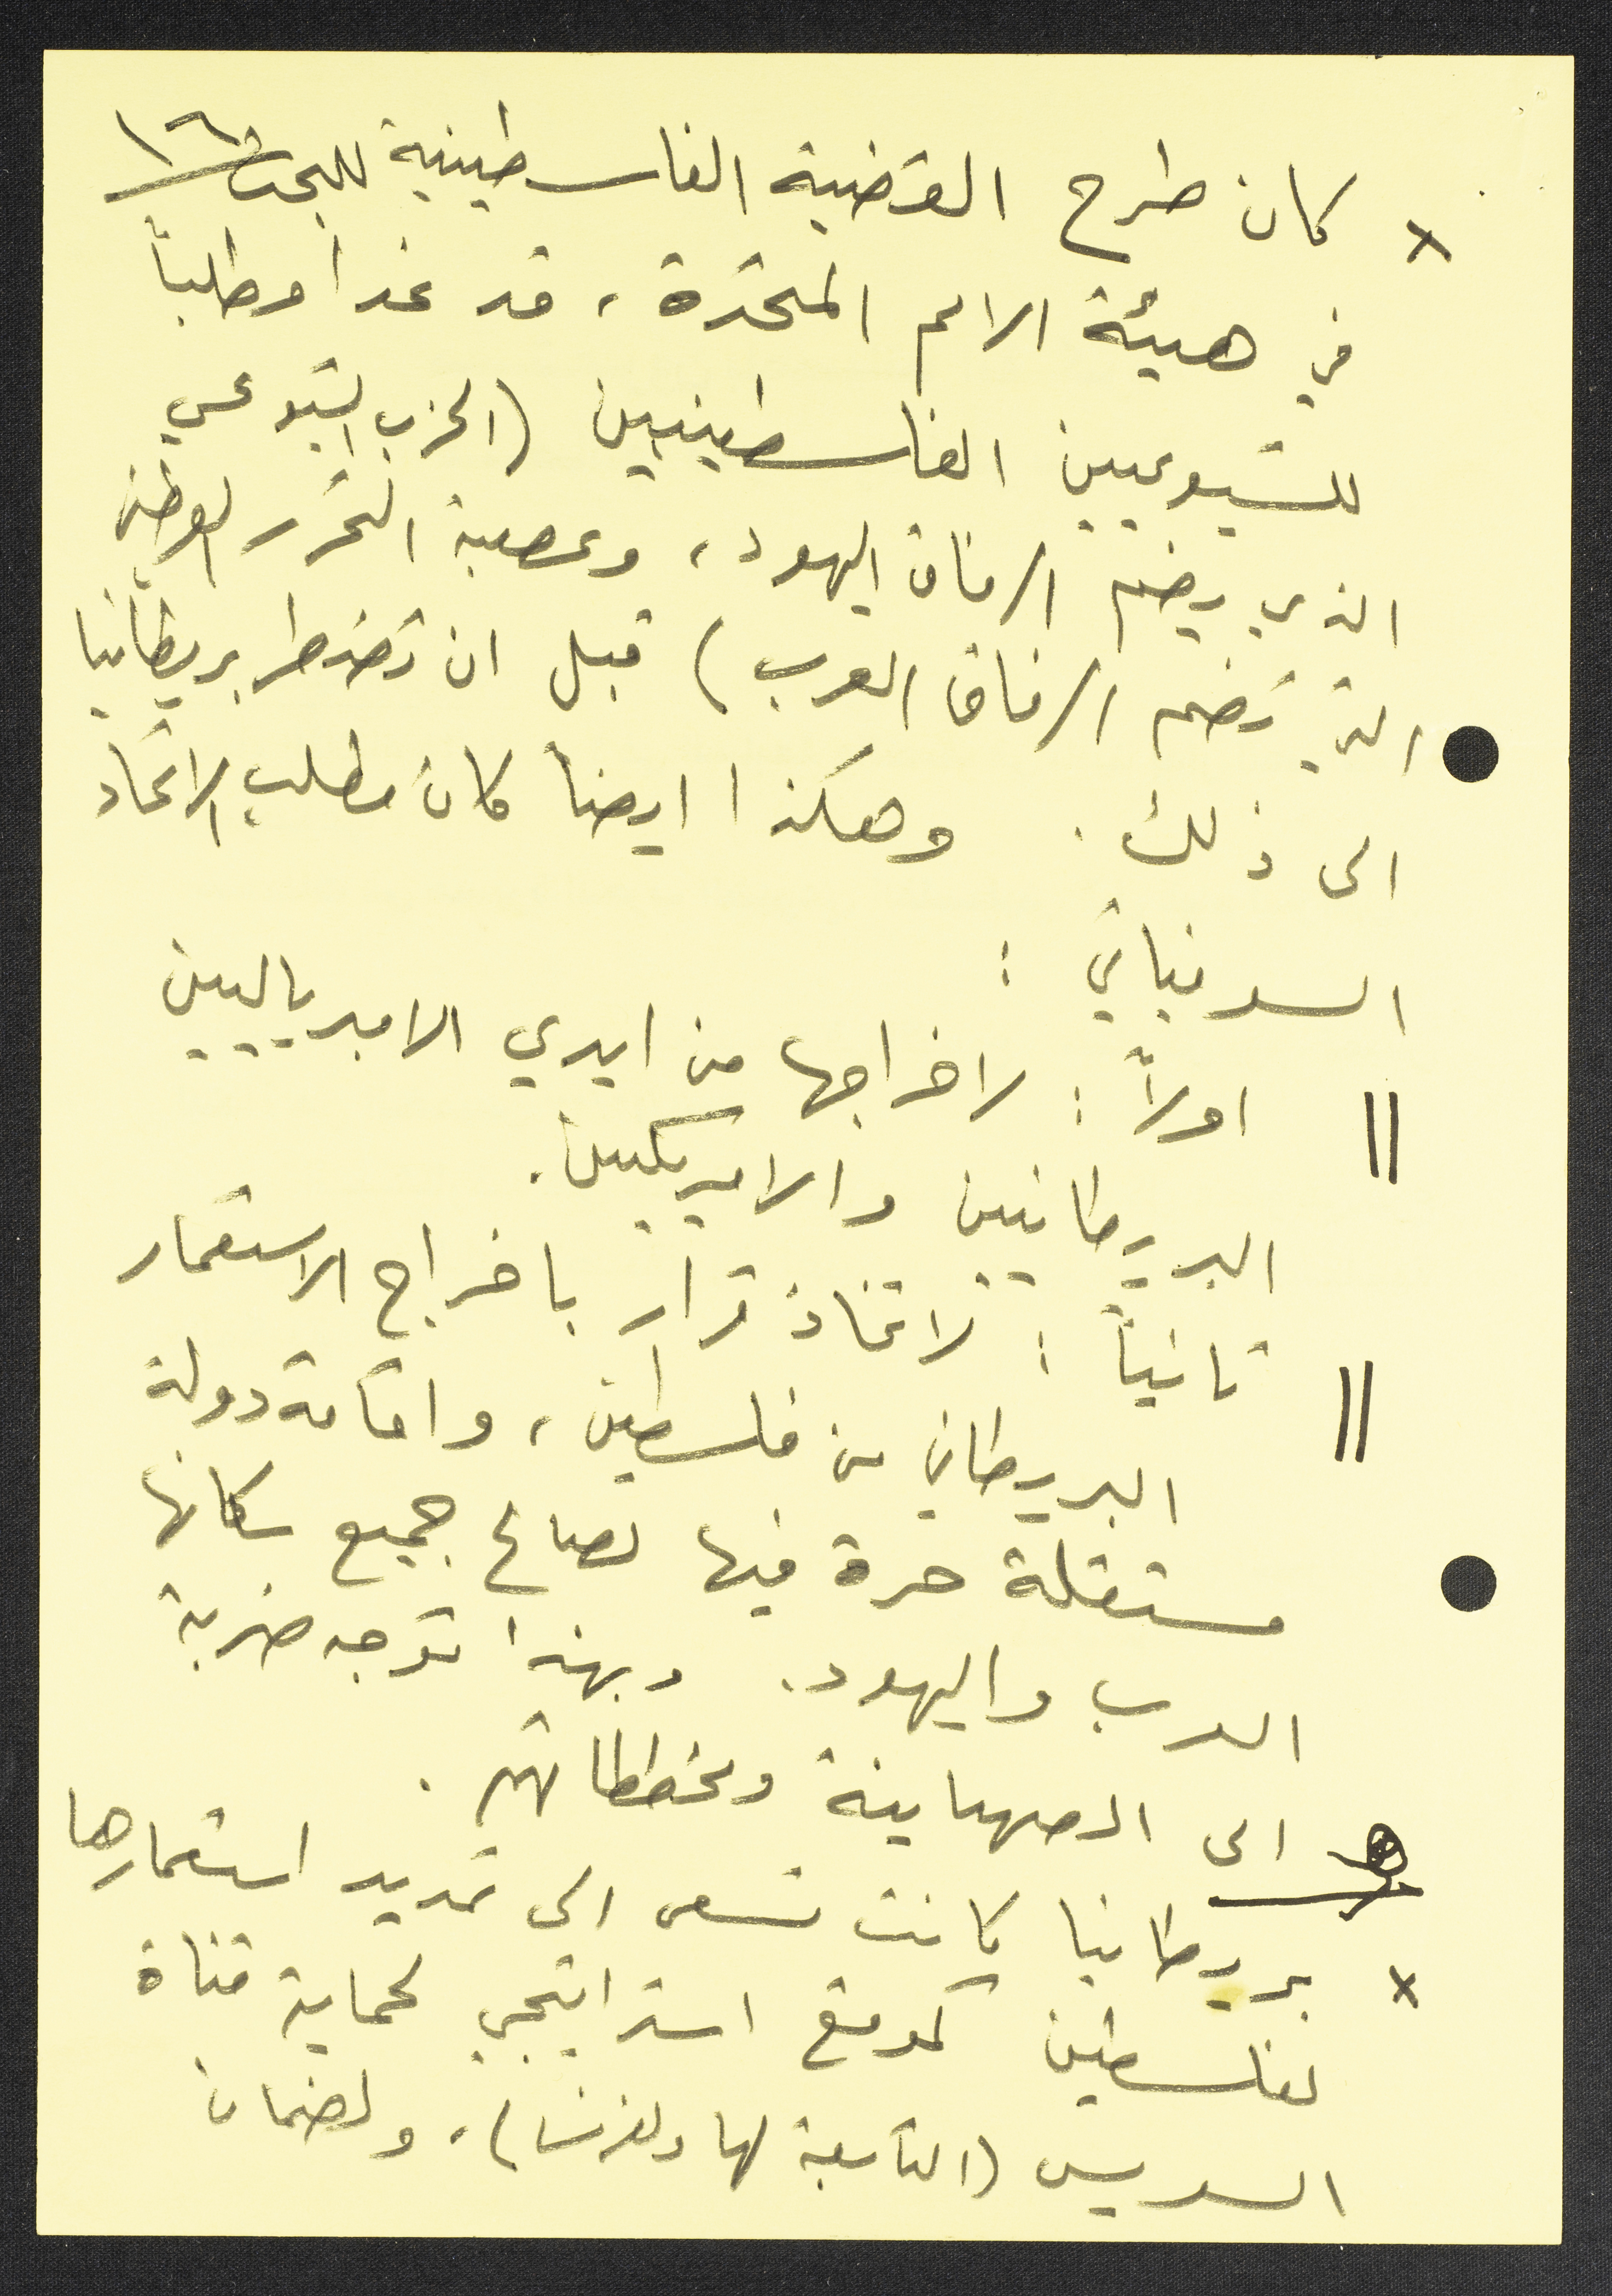 ١٦
× كان طرح القضية الفلسطينية للبحث
في هيئة الامم المتحدة، قد غدا مطلباً
للشيوعيين الفلسطينيين (الحزب الشيوعي
الذي يضم الرفاق اليهود، وعصبة التحرر الوطني
التي تضم الرفاق العرب) قبل ان تضطر بريطانيا
الى ذلك. وهكذا ايضاً كان مطلب الاتحاد
السوفياتي :
|| اولاً : لاخراجها من ايدي الامبرياليين
البريطانيين والاميركيين.
|| ثانياً : لاتخاذ قرار باخراج الاستعمار
البريطاني من فلسطين، واقامة دولة
مستقلة حرة فيها لصالح جميع سكانها
العرب واليهود. وبهذا توجه ضربة
الى الصهاينة ومخططاتهم.
× بريطانيا كانت تسعى الى تمديد استعمارها
لفلسطين كموقع استراتيجي لحماية قناة
السويس (التابعة لها ولفرنسا)، ولضمان